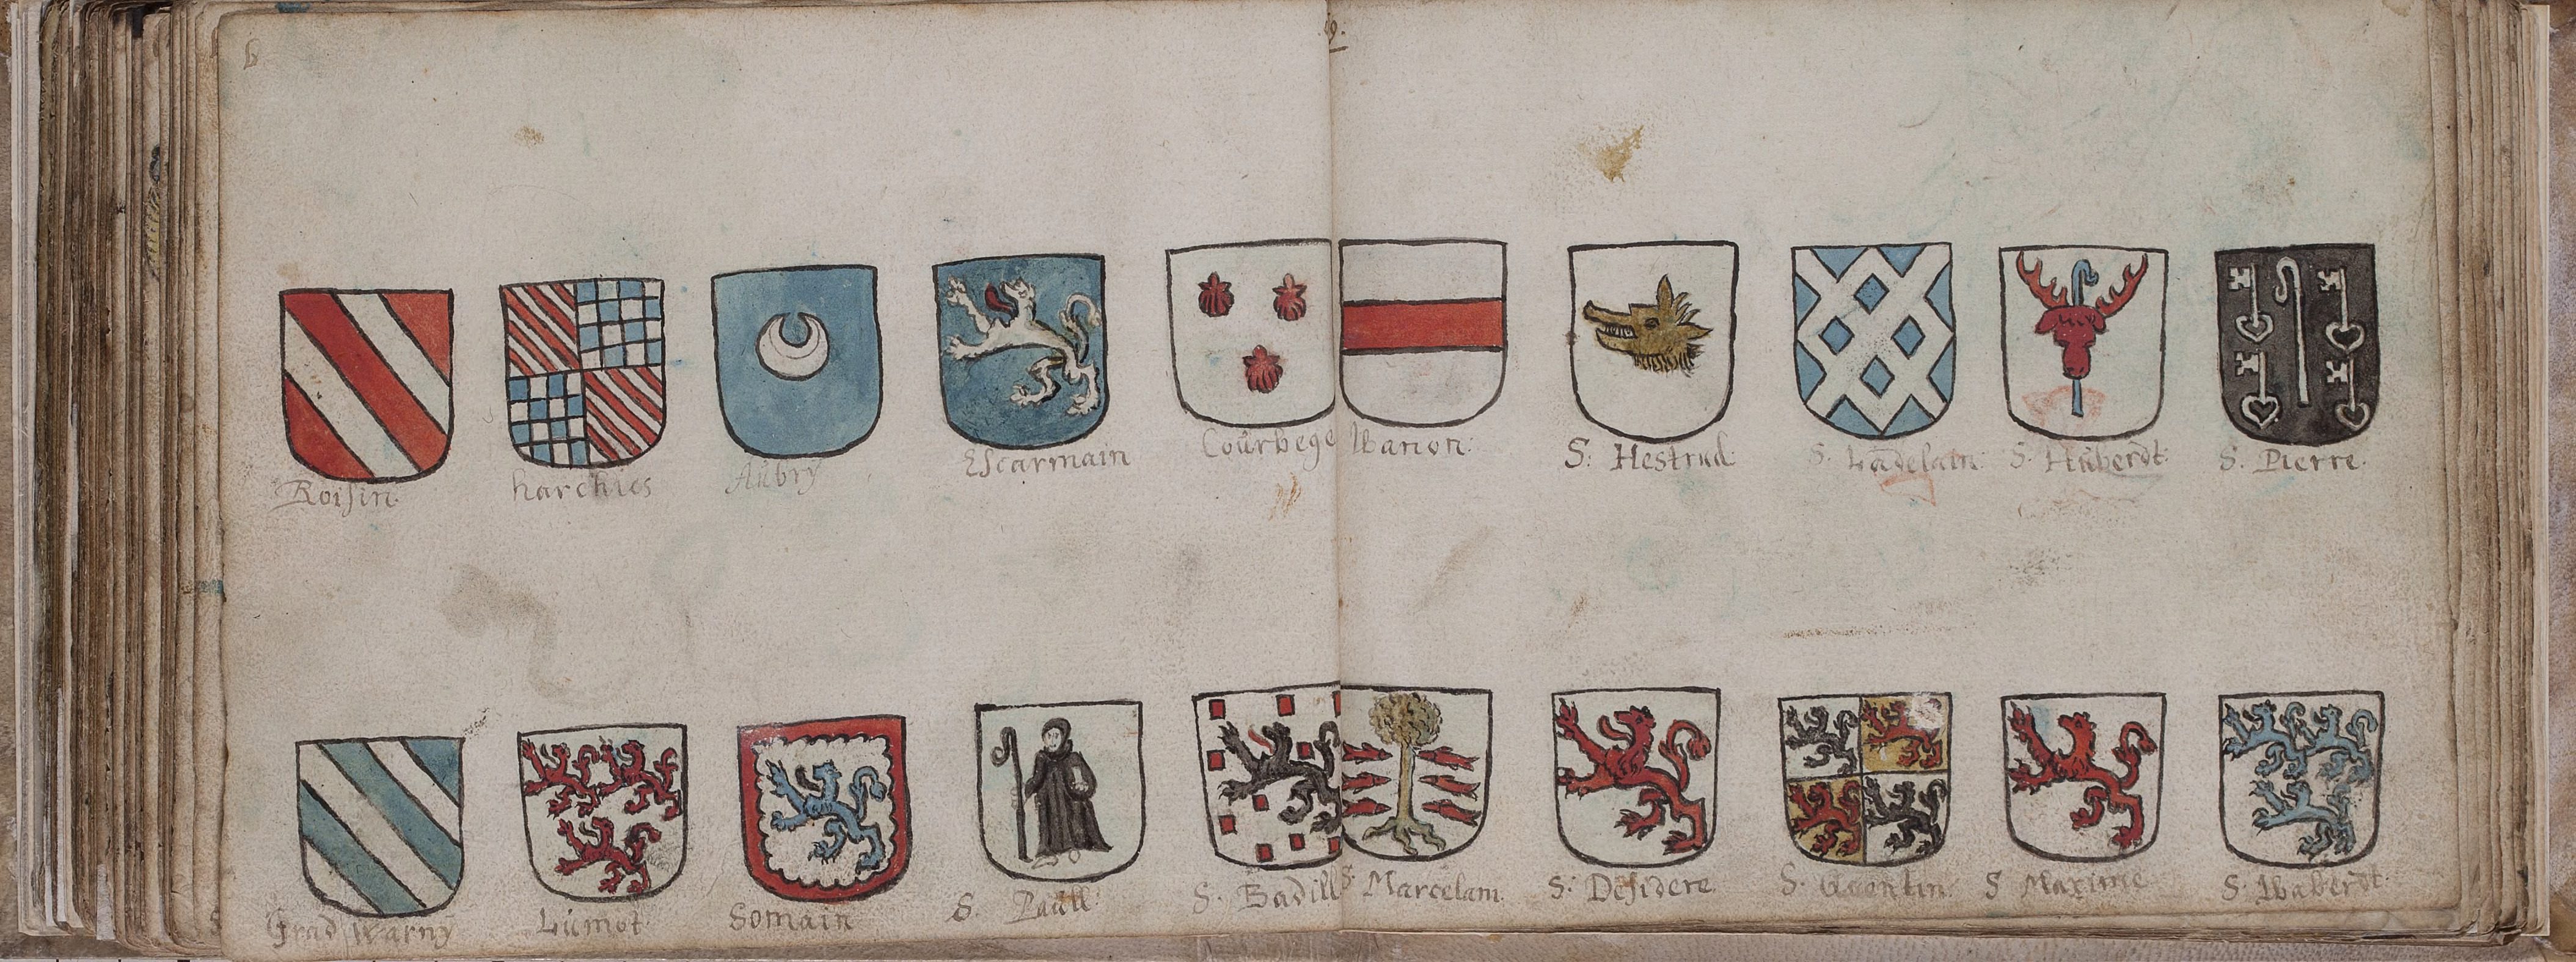 6
9.
Roisin.
harchies
Aubry
Escarmain
Courbege
Wanon.
S. Hestrud.
S. Ladelain.
S. Huberdt.
S. Pierre.
Grad Warny
Lumot
Somain
S. Paull
S. Badill
S. Marcelam.
S. Desidere.
S. Quentin.
S Maxime
S. Waberdt.